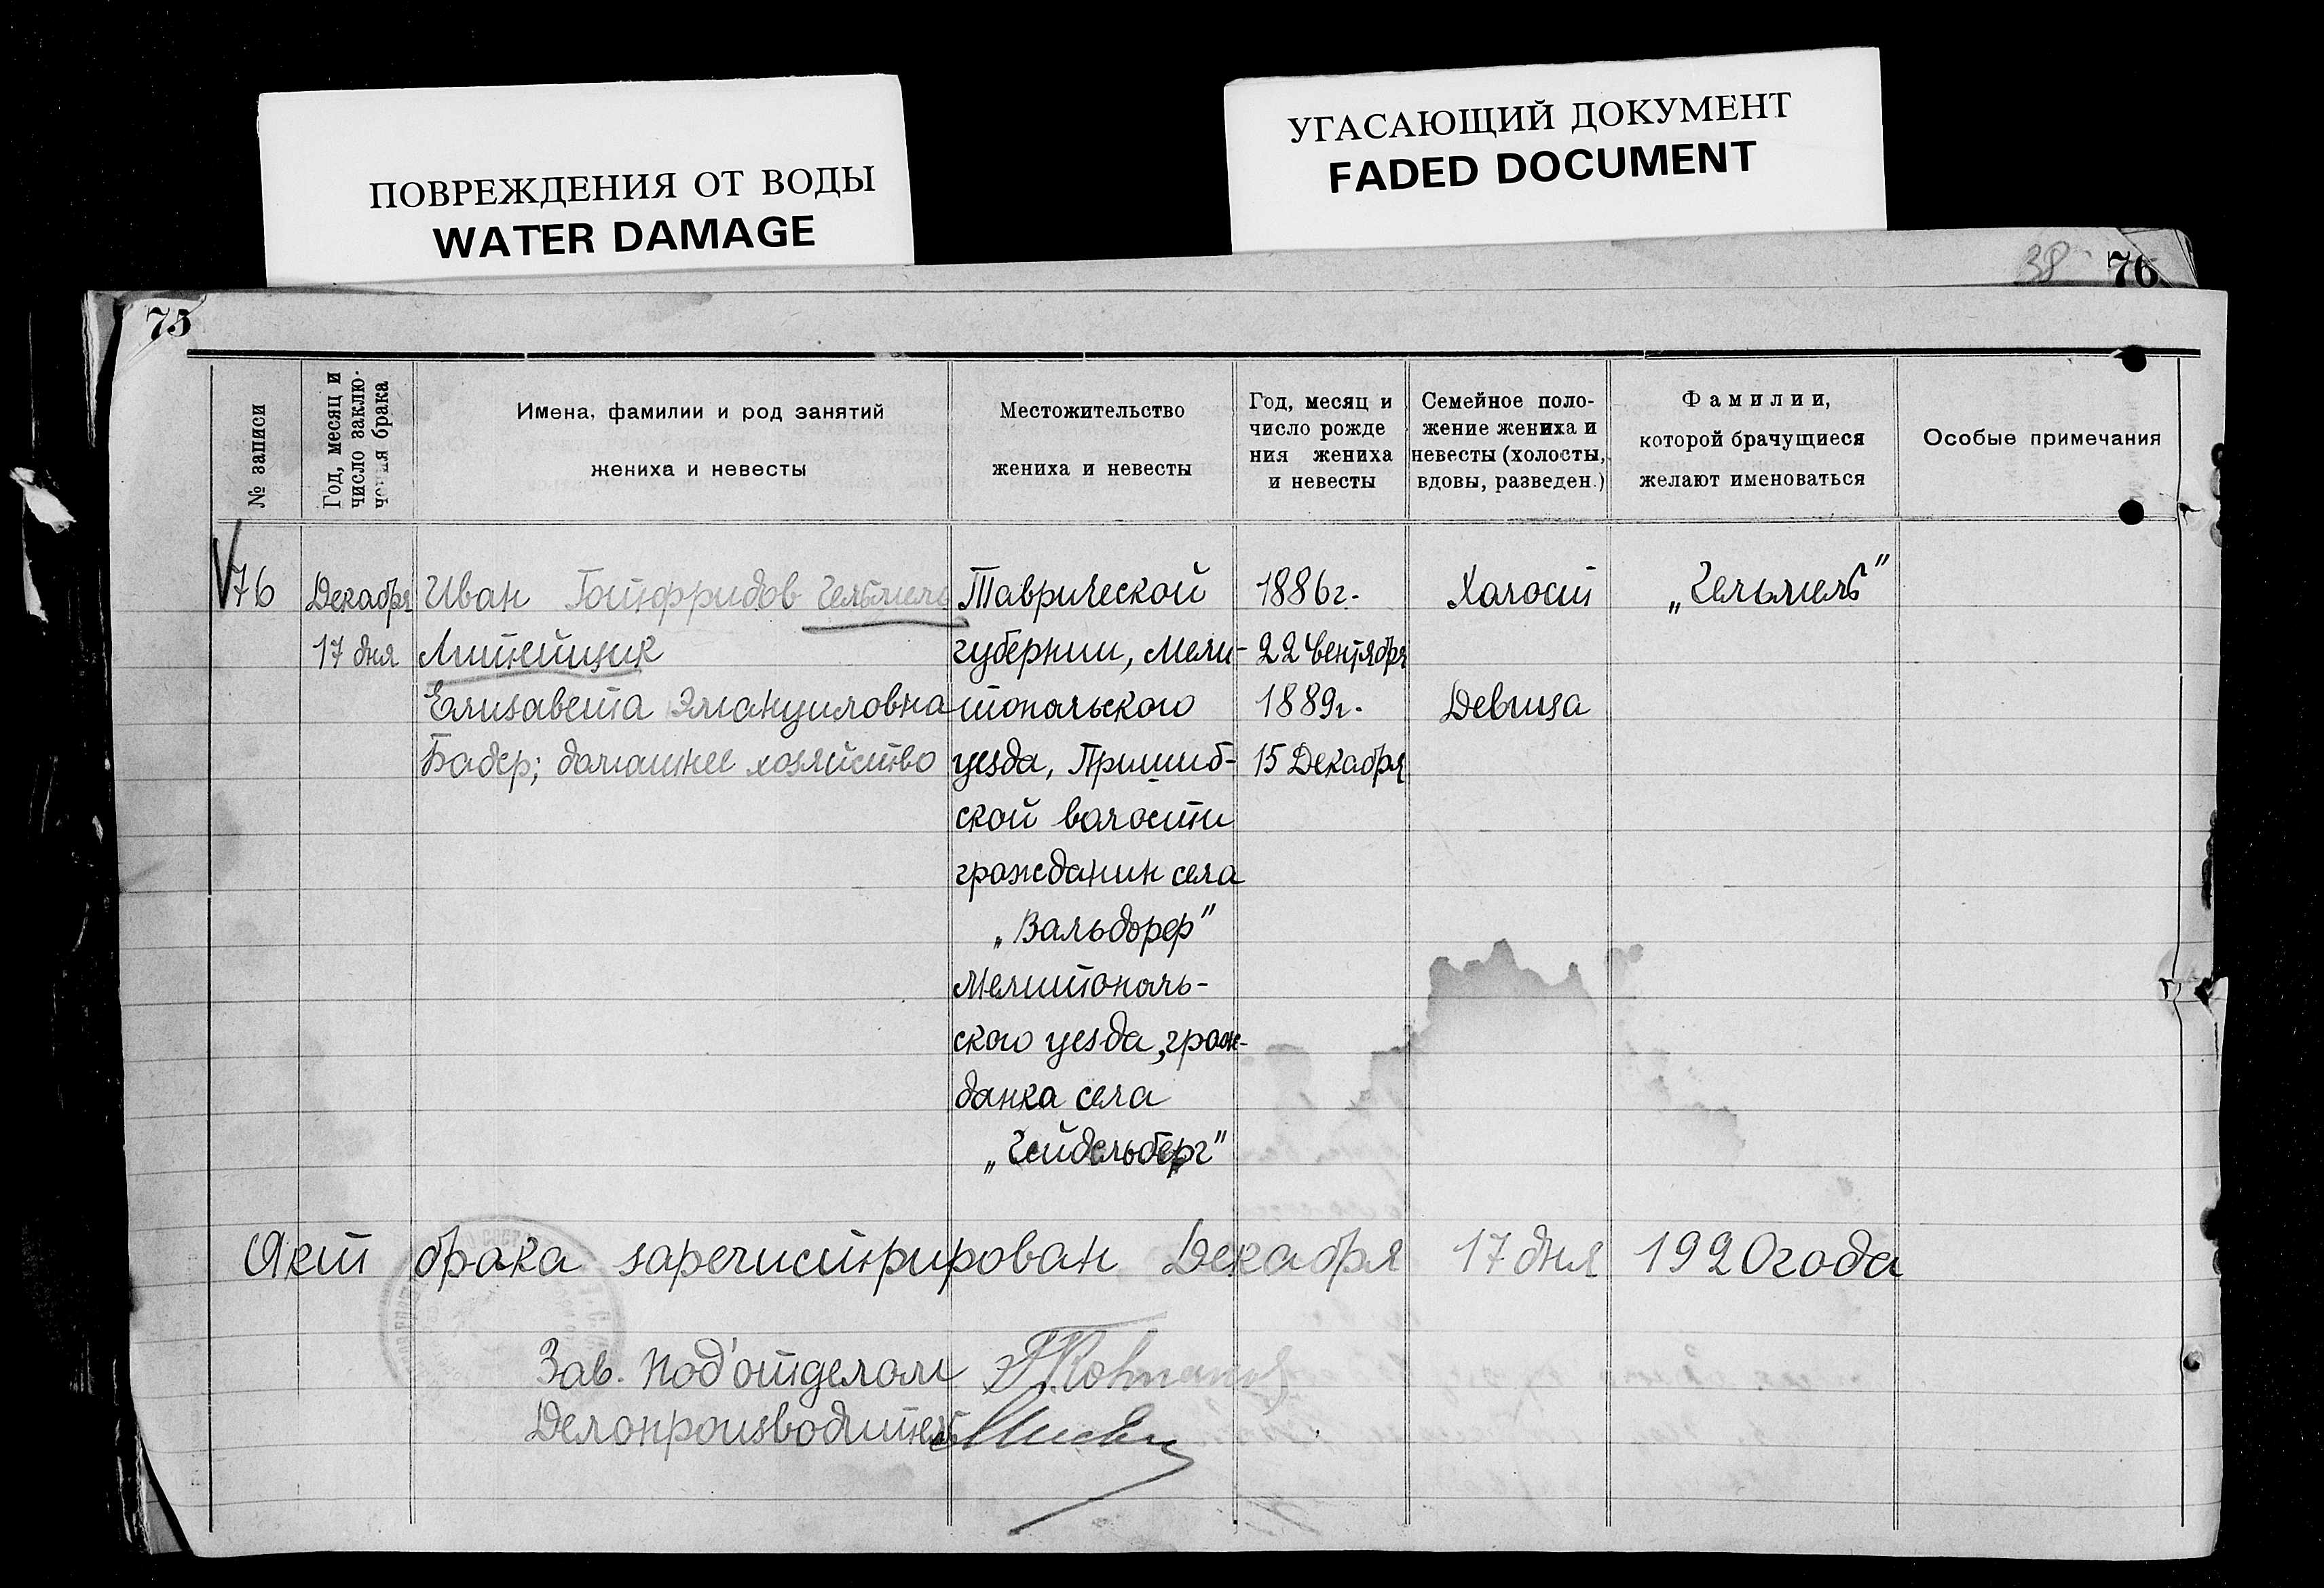 ПОВРЕЖДЕНИЯ ОТ ВОДЫ
WATER DAMAGE
УГАСАЮЩИЙ ДОКУМЕНТ
FADED DOCUMENT
38 76
75
№ записи
Год, месяц и число заклю-чения брака
Имена, фамилии и род занятий
жениха и невесты
Местожительство
жениха и невесты
Год, месяц и
число рожде
ния жениха
и невесты
Семейное поло-
жение жениха и
невесты (холосты,
вдовы, разведен.)
Фамилии,
которой брачущиеся
желают именоваться
Особые примечания
76
Декабря
17 дня
Иван Готфридов Гельмель
Литейщик
Елизавета Эмануиловна
Бадер; домашнее хозяйство
Таврической
губернии, Мели-
топольского
уезда, Пришиб-
ской волости
гражданин села
„Вальдорф"
Мелитополь-
ского уезда, граж-
данка села
„Гейдельберг"
1886г.
22 Сентября
1889г.
15 Декабря
Холост
Девица
„Гельмель"
Акт брака зарегистрирован Декабря 17 дня 1920 года
Зав. Под'отделом
Делопроизводитель